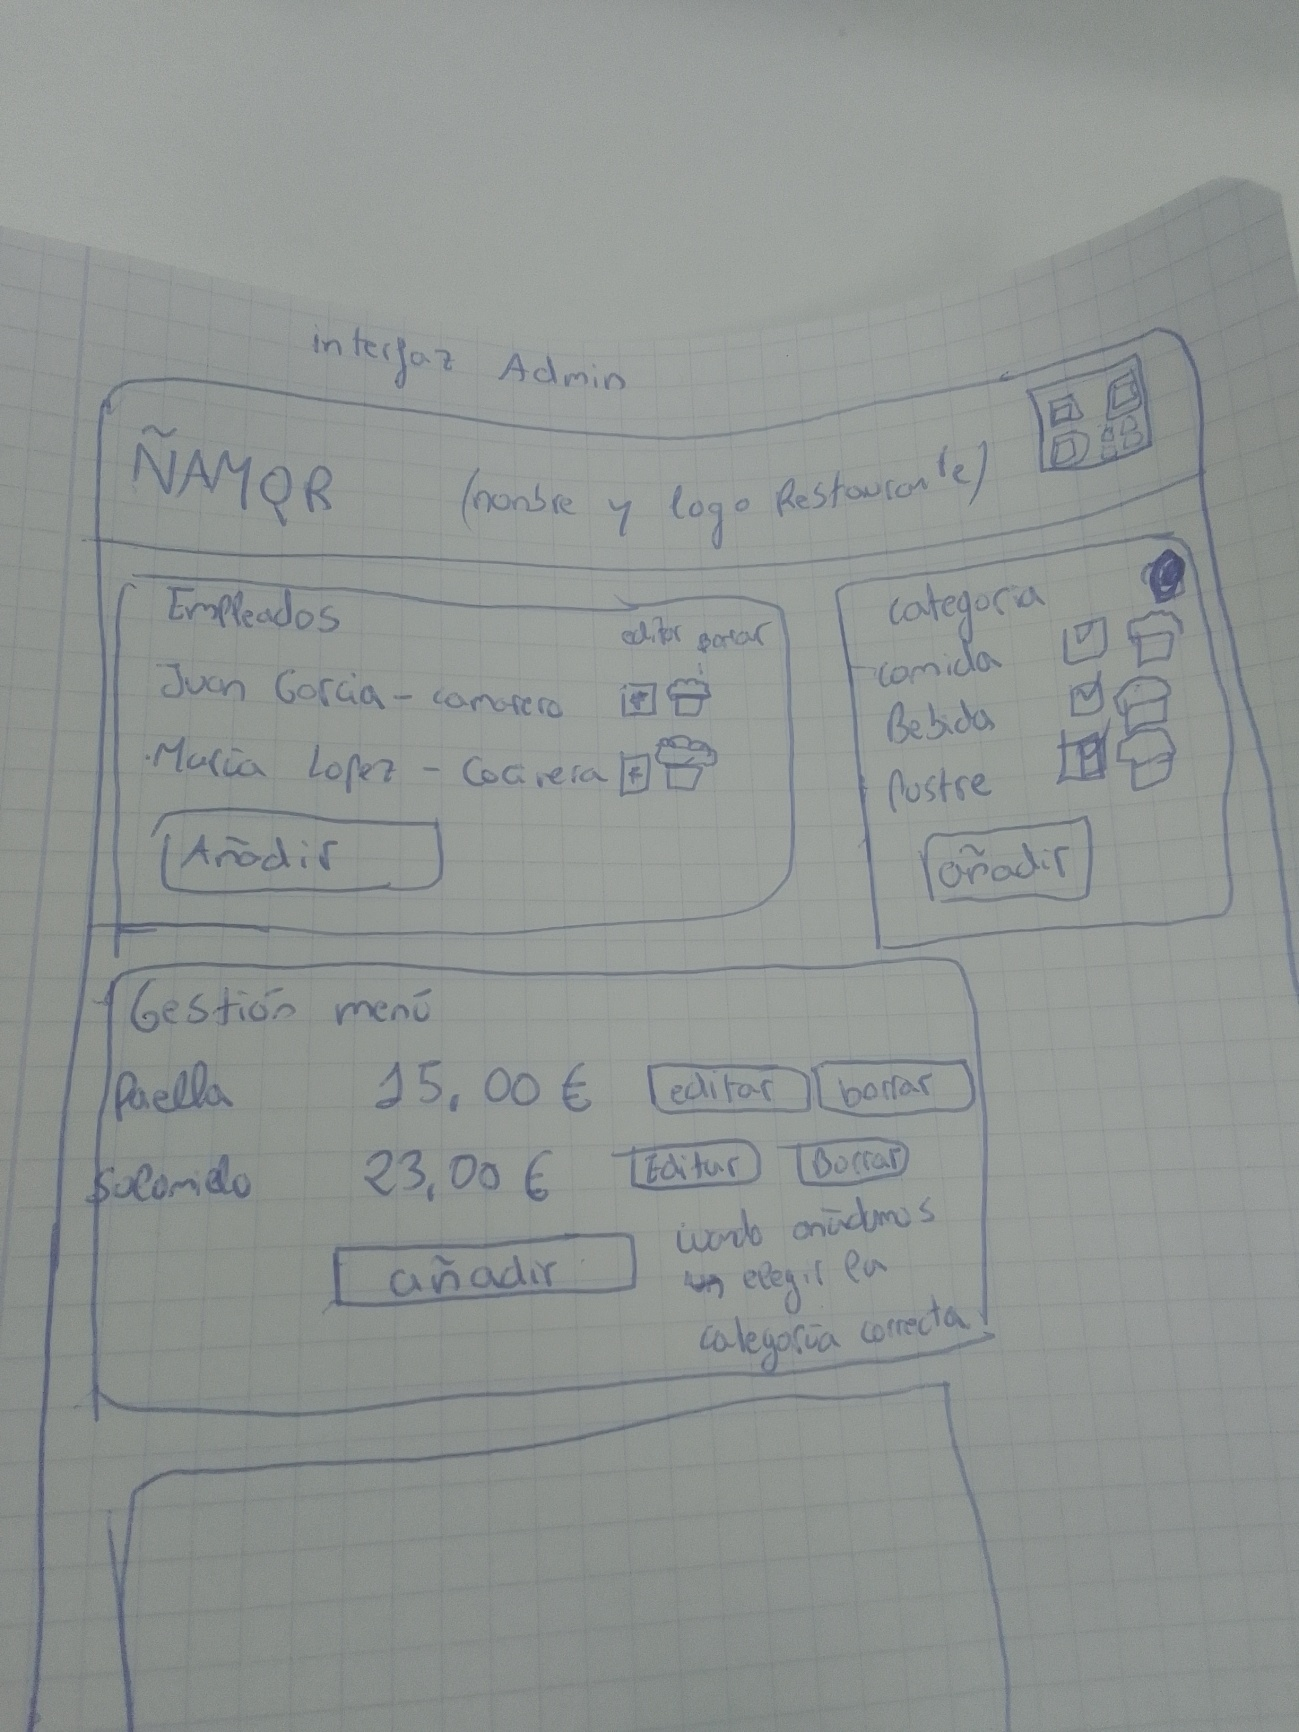 interfaz Admin
ÑAMQR (nombre y logo Restaurante)
Empleados
editar borrar
Juan Garcia - camarero
Maria Lopez - Cocinera
Añadir
categoria
comida
Bebida
Postre
añadir
Gestión menú
Paella 15,00 € editar borrar
Solomillo 23,00 € Editar Borrar
añadir
cuando añadimos
elegir la
categoria correcta